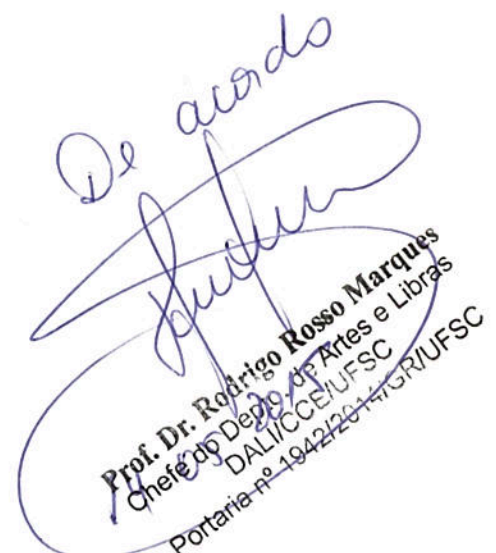 De acordo
Prof. Dr. Rodrigo Rosso Marques
Chefe do Depto. de Artes e Libras
DALI/CCE/UFSC
Portaria nº 1942/2014/GR/UFSC